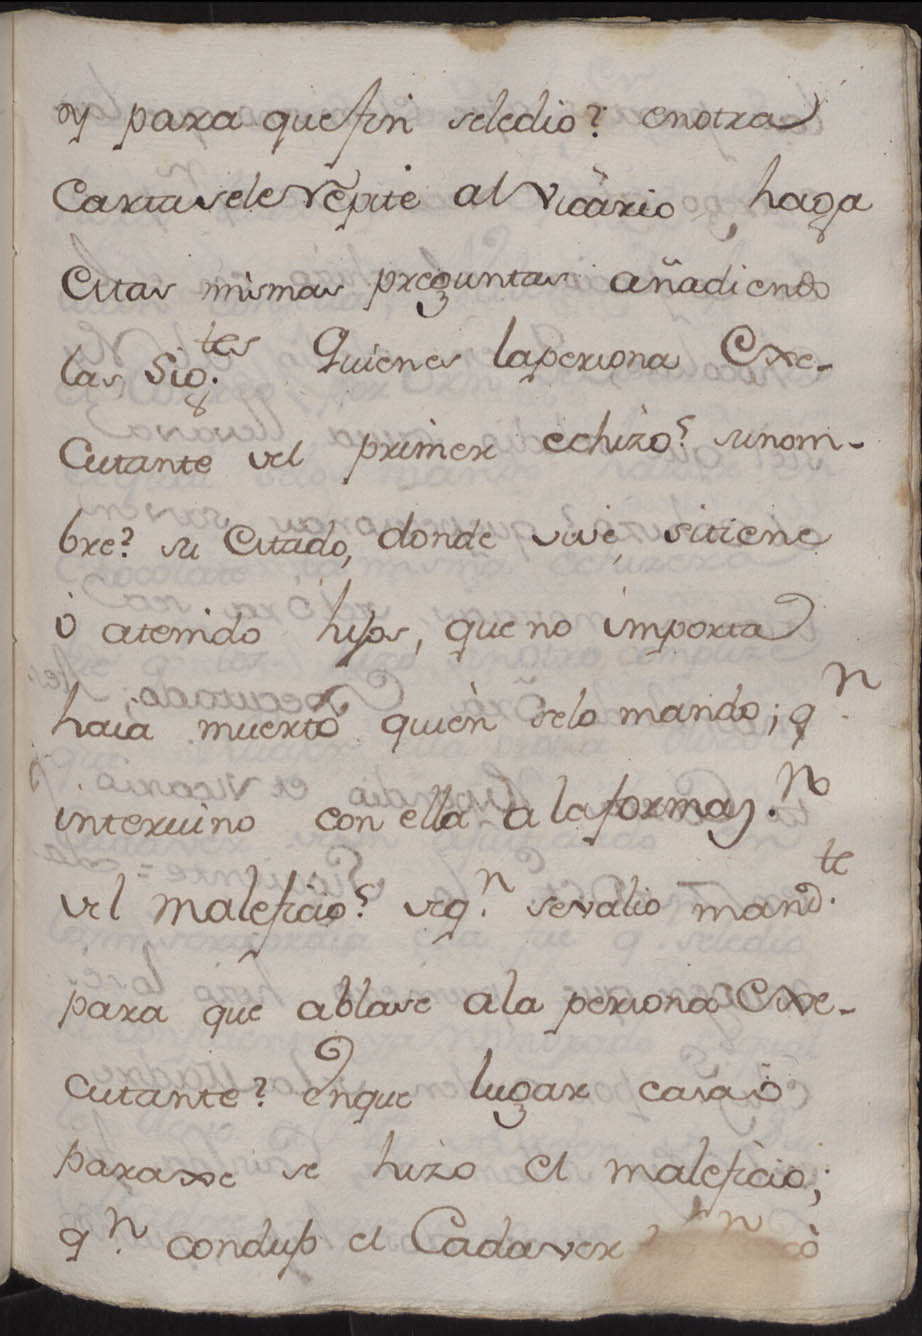 y para que fin sele dio? en otra
Carta sele rèpite al Vicario, haga
estas mismas preguntas añadiendo
las Sig.tes Quien es la persona Exe-
cutante del primer echizo? su nom-
bre? su Estado, donde vive, si tiene
ò a tenido hijos, que no importa
haia muerto quièn selo mando; q.n
intervino con ella a la formaz.n
del maleficio? de q.n se valio mand.te
para que ablase a la persona Exe-
cutante? en que lugar casa ò
paraxe se hizo el maleficio;
q.n condujo el Cadaver